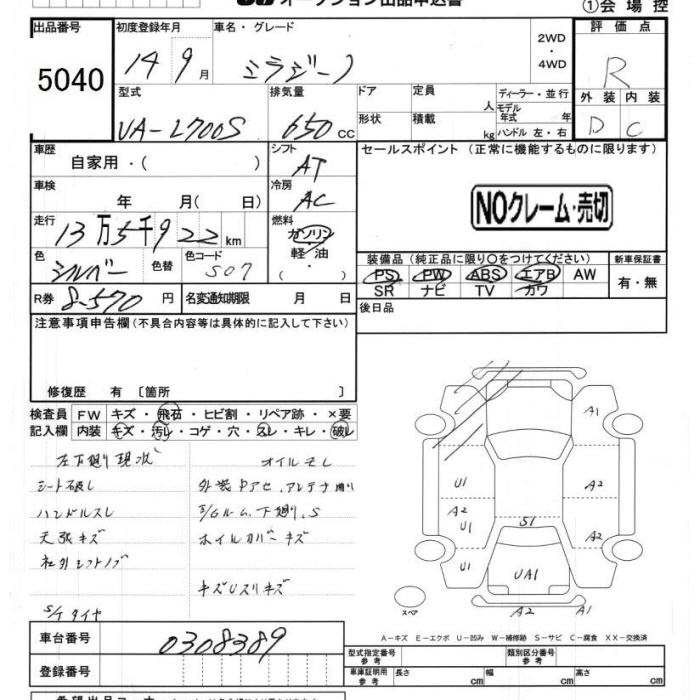 オークション出品申込書
①会場控
出品番号 初度登録年月 車名・グレード 評価点
5040 14 9月 ミラジーノ 2WD・4WD R
型式 排気量 ドア 定員 人 ディーラー・並行 外装 内装
UA-L700S 650cc 形状 積載 kg モデル年式 年 ハンドル 左・右 D C
車歴 シフト セールスポイント（正常に機能するものに限ります）
自家用・（ ） AT
車検 冷房
年 月（ 日） AC NOクレーム・売切
走行 燃料
13万5千922km ガソリン
軽油
色 色替 色コード 装備品（純正品に限り○をつけてください） 新車保証書
シルバー S07 PS PW ABS エアB AW 有・無
SR ナビ TV カワ
R券 8-570円 名変通知期限 月 日 後日品
注意事項申告欄（不具合内容等は具体的に記入して下さい）
修復歴 有 〔箇所 〕
検査員 FW キズ・飛石・ヒビ割・リペア跡・×要
記入欄 内装 キズ・汚レ・コゲ・穴・スレ・キレ・破レ
左右下廻り現状 オイルモレ
シート破レ
ハンドルスレ 下廻り S
天張キズ ホイルカバーキズ
社外シフトノブ
キズUスリキズ
S/Tタイヤ
A1
U1 A2
A2 U1 S1 A2
U1 UA1
スペア A2 A1
A－キズ E－エクボ U－凹み W－補修跡 S－サビ C－腐食 XX－交換済
車台番号 0308389 型式指定番号 参考 類別区分番号 参考
登録番号 車庫証明用 参考 長さ cm 幅 cm 高さ cm